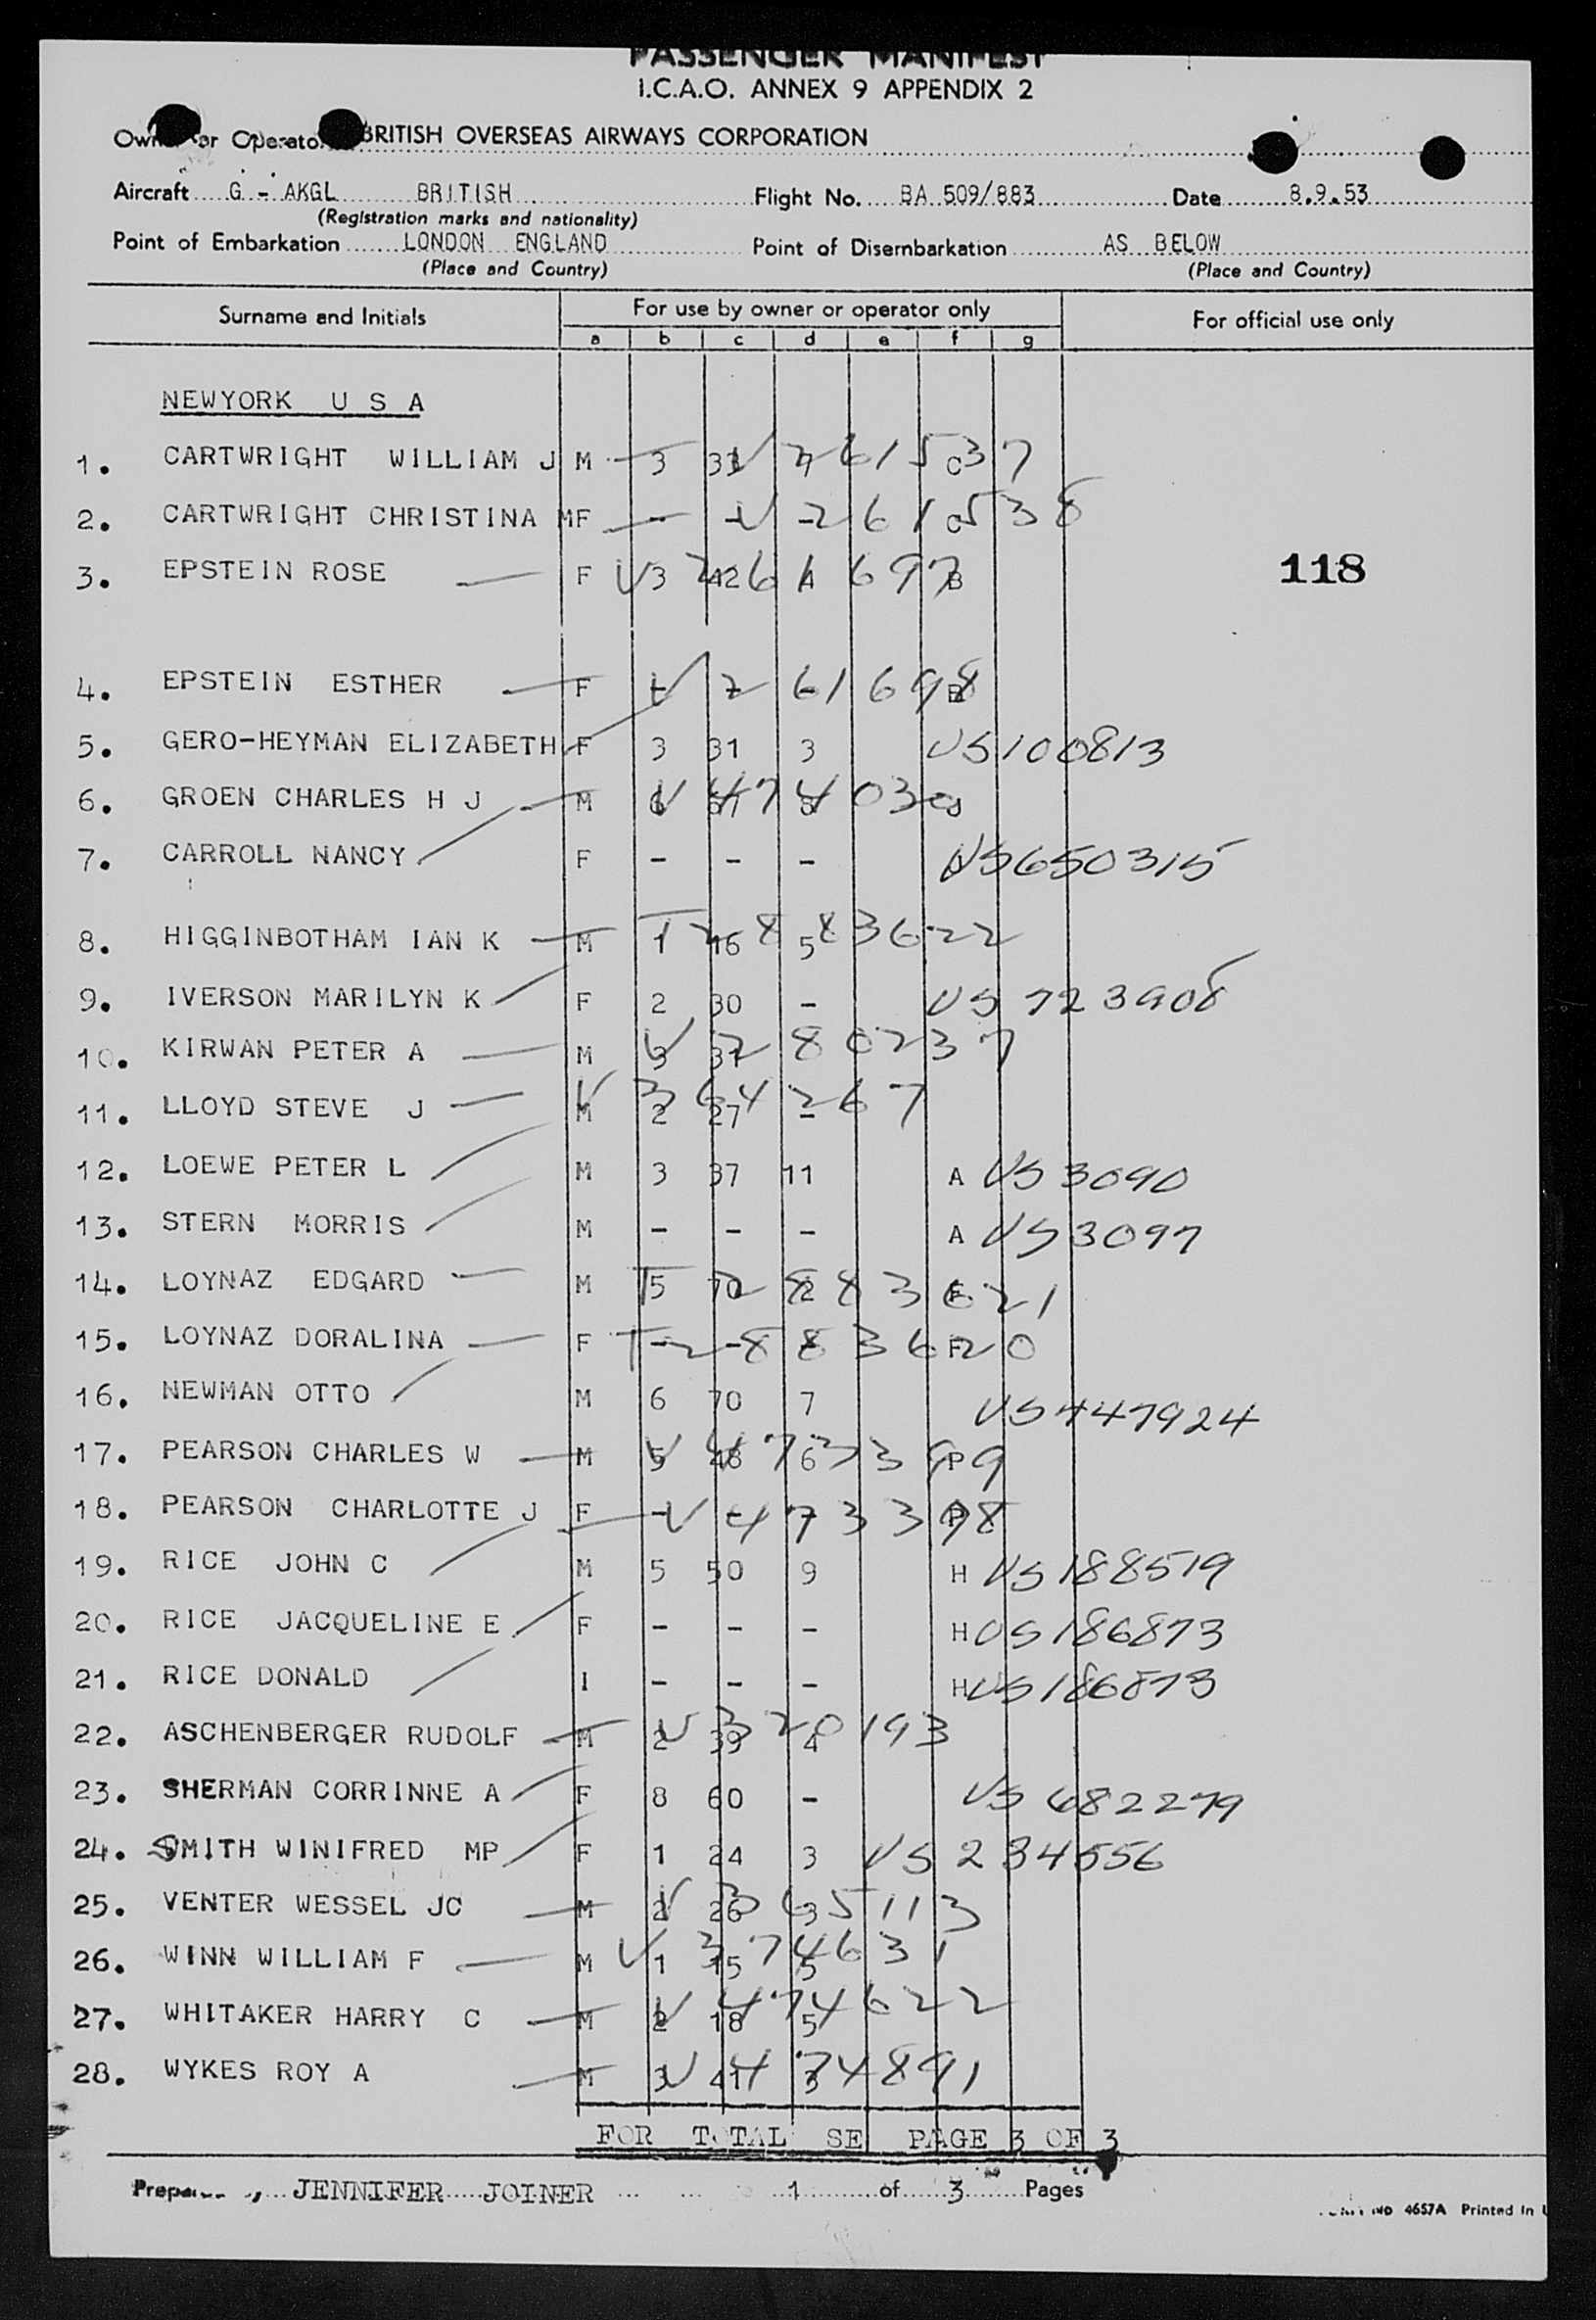 PASSENGER MANIFEST
I.C.A.O. ANNEX 9 APPENDIX 2
Owner or Operator BRITISH OVERSEAS AIRWAYS CORPORATION
Aircraft G - AKGL BRITISH Flight No. BA 509/883 Date 8.9.53
(Registration marks and nationality)
Point of Embarkation LONDON ENGLAND Point of Disembarkation AS BELOW
(Place and Country) (Place and Country)
Surname and Initials For use by owner or operator only For official use only
a b c d e f g
NEWYORK U S A
1. CARTWRIGHT WILLIAM J M 3 33 C V 261537
2. CARTWRIGHT CHRISTINA M F - - - C V 261538
3. EPSTEIN ROSE F 3 42 B V 261697
118
4. EPSTEIN ESTHER F - - - V 261698
5. GERO-HEYMAN ELIZABETH F 3 31 3 US 100813
6. GROEN CHARLES H J M V 474030
7. CARROLL NANCY F - - - US650315
8. HIGGINBOTHAM IAN K M 1 16 5 T 2883622
9. IVERSON MARILYN K F 2 30 - US 723908
10. KIRWAN PETER A M 3 37 V 280237
11. LLOYD STEVE J M 2 27 - V 364267
12. LOEWE PETER L M 3 37 11 A US 3090
13. STERN MORRIS M - - - A US 3097
14. LOYNAZ EDGARD M 5 70 2 F T 2883621
15. LOYNAZ DORALINA F - - - F T 2883620
16. NEWMAN OTTO M 6 70 7 US 447924
17. PEARSON CHARLES W M 5 48 6 P V 473399
18. PEARSON CHARLOTTE J F - - - P V 473398
19. RICE JOHN C M 5 50 9 H US 188519
20. RICE JACQUELINE E F - - - H US 186873
21. RICE DONALD I - - - H US 186873
22. ASCHENBERGER RUDOLF M 2 39 4 V 320193
23. SHERMAN CORRINNE A F 8 60 - US 682279
24. SMITH WINIFRED MP F 1 24 3 US 234556
25. VENTER WESSEL JC M 2 26 3 V 365113
26. WINN WILLIAM F M 1 15 5 V 374631
27. WHITAKER HARRY C M 2 18 5 V 474622
28. WYKES ROY A M 3 41 3 V 474891
FOR TOTAL SE PAGE 3 OF 3
JENNIFER JOINER 1 of 3 Pages
4657A Printed in